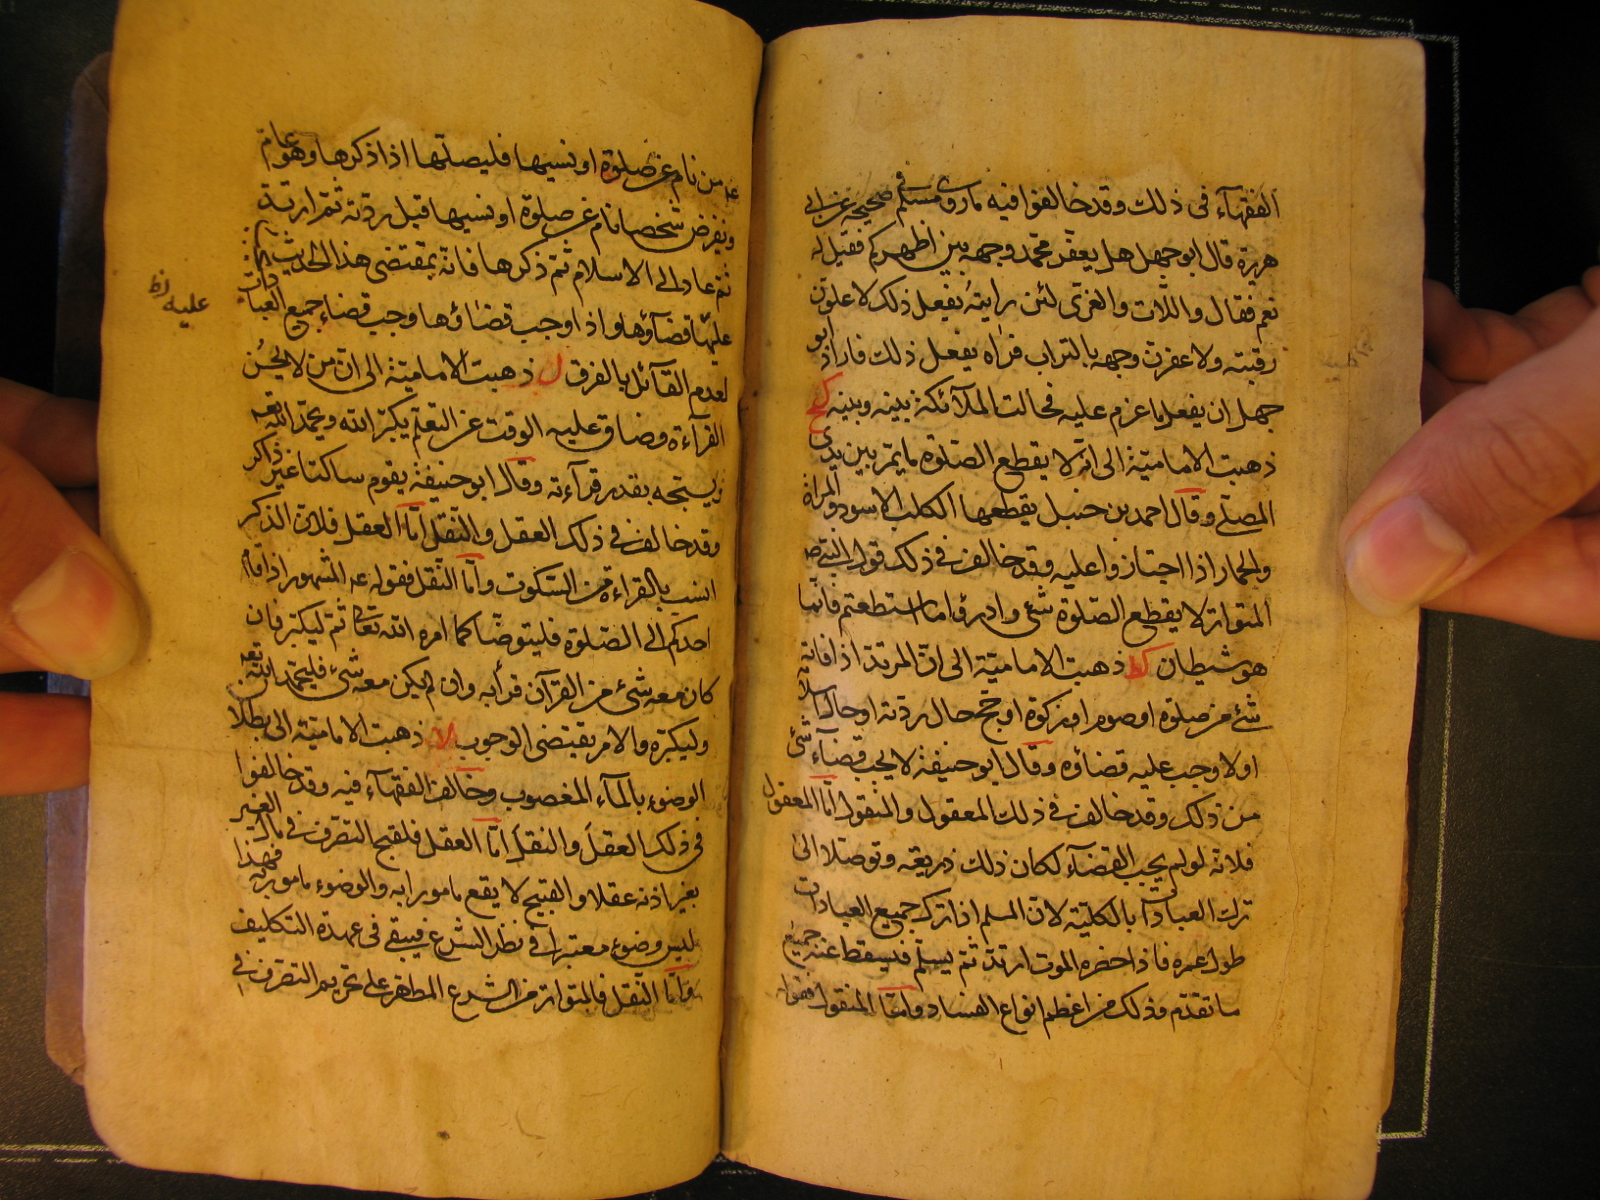 الفقهاء فى ذلك وقد خالفوا فيه ما روى مسلم فى صحيحه عن ابى
هريرة قال ابو جهل هل يعفر محمد وجهه بين اظهركم فقيل له
نعم فقال واللات والعزى لئن رايته يفعل ذلك لاعلون
رقبته ولاعفرن وجهه بالتراب فراه يفعل ذلك فاراد ابو
جهل ان يفعل ما عزم عليه فحالت الملائكة بينه وبينه كح
ذهبت الامامية الى انه لا يقطع الصلوة ما يمر بين يدى
المصلى وقال احمد بن حنبل يقطعها الكلب الاسود والمراة
والحمار اذا اجتازوا عليه وقد خالف فى ذلك قول النبى ص
المتواتر لا يقطع الصلوة شئ وادرؤا ما استطعتم فانما
هو شيطان كط ذهبت الامامية الى ان المرتد اذا فاته
شئ من صلوة او صوم او زكوة او حج حال ردته او حال اسلامه
اولا وجب عليه قضاؤه وقال ابو حنيفة لا يجب قضاء شئ
من ذلك وقد خالف فى ذلك المعقول والمنقول اما المعقول
فلانه لو لم يجب القضاء لكان ذلك ذريعة وتوصلا الى
ترك العبادات بالكلية لان المسلم اذا ترك جميع العبادات
طول عمره فاذا حضره الموت ارتد ثم يسلم فيسقط عنه جميع
ما تقدم وذلك من اعظم انواع الفساد واما المنقول فقوله
عد من نام عن صلوة او نسيها فليصلها اذا ذكرها وهو عام
ونفرض شخصا نام عن صلوة او نسيها قبل ردته ثم ارتد
ثم عاد الى الاسلام ثم ذكرها فانه بمقتضى هذا الحديث يجب
عليه قضاؤها واذا وجب قضاؤها وجب قضاء جميع العبادات
عليه ظ
لعدم القائل بالفرق ل ذهبت الامامية الى ان من لا يحسن
القراءة وضاق عليه الوقت عن التعلم يكبر الله ويحمد الله تعه
ويسبحه بقدر قرآءته وقال ابو حنيفة يقوم ساكتا غير ذاكر
وقد خالف فى ذلك العقل والنقل اما العقل فلان الذكر
انسب بالقراءة من السكوت واما النقل فقوله عد المشهور اذا قام
احدكم الى الصلوة فليتوضا كما امره الله تعالى ثم ليكبر فان
كان معه شئ من القرآن قرأ به وان لم يكن معه شئ فليحمد الله تعه
وليكبره والامر يقتضى الوجوب لا ذهبت الامامية الى بطلان
الوضوء بالماء المغصوب وخالف الفقهاء فيه وقد خالفوا
فى ذلك العقل والنقل اما العقل فلقبح التصرف فى مال الغير
بغير اذنه عقلا والقبيح لا يقع مامورا به والوضوء مامور به فهذا
ليس وضوء معتبرا فى نظر الشرع فيبقى فى عهدة التكليف
واما النقل فالمتواتر من الشرع المطهر على تحريم التصرف فى